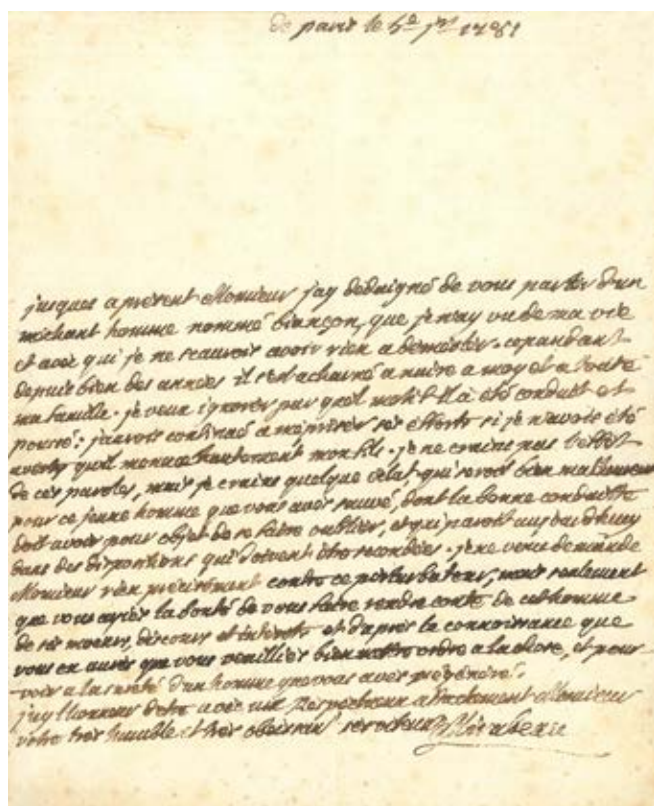 de paris le 5e jer 1781
jusques a present Monsieur j'ay dedaigné de vous parler d'un
mechant homme nommé biançon, que je n'ay vu de ma vie
et avec qui je ne scaurois avoir rien a demesler. cependant
depuis bien des années il s'est acharné a nuire a moy et a toute
ma famille. je veux ignorer par quel motif il a été conduit et
poussé: j'aurois continué a mépriser ses efforts si je n'avois été
averty qu'il menace hautement mon fils. je ne crains pas l'effet
de ces paroles, mais je crains quelque éclat, qui seroit bien malheureux
pour ce jeune homme que vous avés sauvé, dont la bonne conduitte
doit avoir pour objet de se faire oublier, et qui paroit aujourdhuy
dans des dispositions qui doivent etre secondées. je ne vous demande
Monsieur rien précisément contre ce perturbateur, mais seulement
que vous ayiés la bonté de vous faire rendre conte de cet homme
de ses moeurs, discours et interets et d'après la connoissance que
vous en aurés que vous veuilliés bien mettre ordre a la chose, et pour
voir a la sureté d'un homme que vous avés
j'ay l'honneur d'etre avec un respectueux attachement Monsieur
votre très humble et très obeissant serviteur Mirabeau